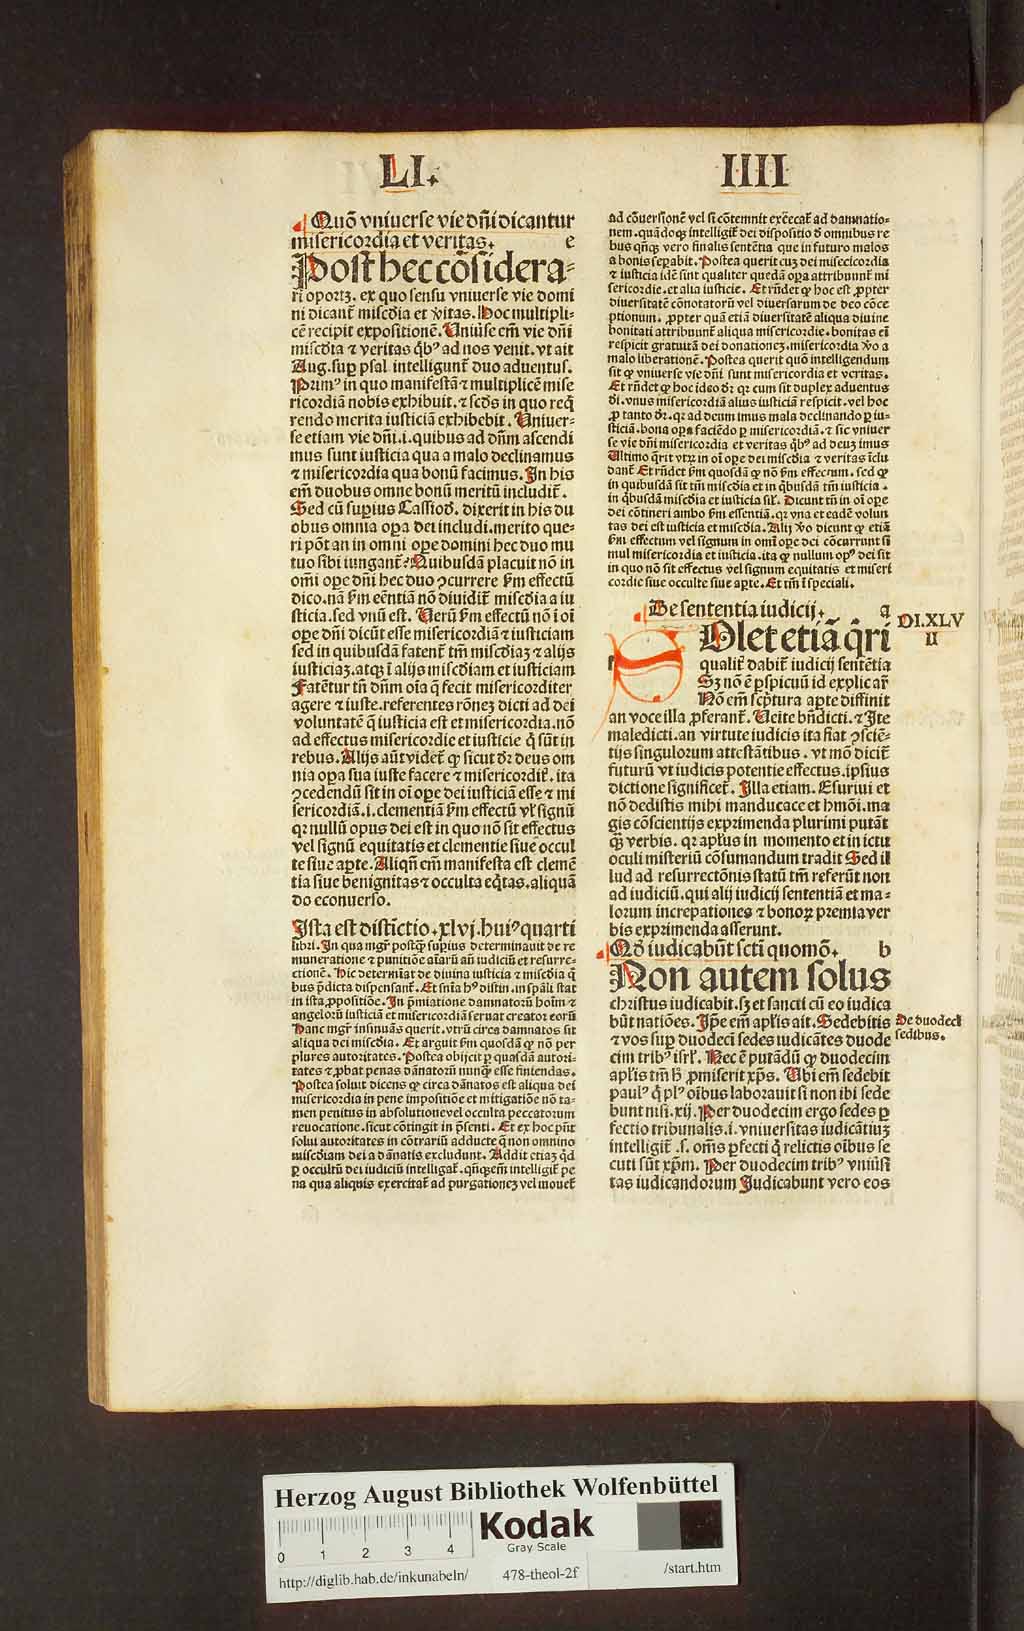 LI.
IIII
Quō vniuerse vie dn̄i dicantur
misericordia et veritas. e
Post hec cōsidera-
ri oportꝫ. ex quo sensu vniuerse vie domi
ni dicant᷑ miscd̄ia et ꝟitas. Hoc multipli-
cē recipit expositionē. Uniūse em̄ vie dn̄i
miscd̄ia ⁊ veritas qͥbꝰ ad nos venit. vt ait
Aug. suꝑ psal intelligunt᷑ duo aduentus.
Primꝰ in quo manifestā ⁊ multiplicē mise
ricordiā nobis exhibuit. ⁊ scd̄s in quo reqͥ
rendo merita iusticiā exhibebit. Uniuer-
se etiam vie dn̄i .i. quibus ad dn̄m ascendi
mus sunt iusticia qua a malo declinamus
⁊ misericordia qua bonū facimus. In his
em̄ duobus omne bonū meritū includit᷑.
Sed cū suꝑius Cassiod. dixerit in his du
obus omnia oꝑa dei includi. merito que-
ri pōt an in omni oꝑe domini hec duo mu
tuo sibi iungant᷑? Quibusdā placuit nō in
om̄i oꝑe dn̄i hec duo ꝯcurrere ẜm effectū
dico. nā ẜm eēntiā nō diuidit᷑ miscd̄ia a iu
sticia. sed vnū est. Uerū ẜm effectū nō ī oī
oꝑe dn̄i dicūt esse misericordiā ⁊ iusticiam
sed in quibusdā fatent᷑ tm̄ miscd̄iaꝫ ⁊ alijs
iusticiaꝫ. atqꝫ ī alijs miscd̄iam et iusticiam
Fatēt᷑ tn̄ dn̄m oīa q̄ fecit misericorditer
agere ⁊ iuste. referentes rōneꝫ dicti ad dei
voluntatē q̄ iusticia est et misericordia. nō
ad effectus misericordie et iusticie q̄ sūt in
rebus. Alijs aūt videt᷑ ꝙ sicut dr̄ deus om
nia oꝑa sua iuste facere ⁊ misericordit᷑. ita
ꝯcedendū sit in oī oꝑe dei iusticiā esse ⁊ mi
sericordiā .i. clementiā ẜm effectū vl᷑ signū
qꝛ nullū opus dei est in quo nō sit effectus
vel signū equitatis et clementie siue occul
te siue aꝑte. Aliqn̄ em̄ manifesta est clemē
tia siue benignitas ⁊ occulta eqͥtas. aliquā
do econuerso.
Ista est distīctio .xlvj. huiꝰ quarti
libri. In qua mgr̄ postqͣ suꝑius determinauit de re
muneratione ⁊ punitiōe aīarū an̄ iudiciū et resurre-
ctionē. Hic determīat de diuina iusticia ⁊ miscd̄ia q̄
bus p̄dicta dispensant᷑. Et sn̄ia hꝰ distin. in sp̄ali stat
in ista ꝓpositiōe. In p̄miatione damnatorū hoīm ⁊
angelorū iusticiā et misericordiā seruat creator eorū
Hanc mgr̄ insinuās querit. vtrū circa damnatos sit
aliqua dei miscd̄ia. Et arguit ẜm quosdā ꝙ nō per
plures autoritates. Postea obijcit ꝑ quasdā autori-
tates ⁊ ꝓbat penas dānatorū nunqͣ esse finiendas.
Postea soluit dicens ꝙ circa dānatos est aliqua dei
misericordia in pene impositiōe et mitigatiōe nō ta-
men penitus in absolutione vel occulta peccatorum
reuocatione. sicut cōtingit in p̄senti. Et ex hoc pn̄t
solui autoritates in cōtrariū adducte q̄ non omnino
miscd̄iam dei a dānatis excludunt. Addit etiaꝫ qd̄
ꝑ occultū dei iudiciū intelligat᷑. qn̄qꝫ em̄ intelligit᷑ pe
na qua aliquis exercitat᷑ ad purgationeꝫ vel mouet᷑
ad cōuersionē vel si cōtemnit execcat᷑ ad damnatio-
nem. quādoqꝫ intelligit᷑ dei dispositio d̄ omnibus re
bus qn̄qꝫ vero finalis sentētia que in futuro malos
a bonis seꝑabit. Postea querit cuꝫ dei misecicordia
⁊ iusticia idē sint qualiter quedā oꝑa attribuunt᷑ mi
sericordie. et alia iusticie. Et rn̄det ꝙ hoc est ꝓpter
diuersitatē cōnotatorū vel diuersarum de deo cōce
ptionum. ꝓpter quā etiā diuersitatē aliqua diuine
bonitati attribuunt᷑ aliqua misericordie. bonitas em̄
respicit gratuitā dei donationeꝫ. misericordia ꝟo a
malo liberationē. Postea querit quō intelligendum
sit ꝙ vniuerse vie dn̄i sunt misericordia et veritas.
Et rn̄det ꝙ hoc ideo dr̄ qꝛ cum sit duplex aduentus
dī. vnus misericordiā alius iusticiā respicit. vel hoc
ꝓ tanto dr̄. qꝛ ad deum imus mala declinando ꝑ iu-
sticiā. bona oꝑa faciēdo ꝑ misericordiā. ⁊ sic vniuer
se vie dn̄i misericordia et veritas qͥbꝰ ad deuꝫ imus
Ultimo q̄rit vtꝝ in oī oꝑe dei miscd̄ia ⁊ veritas īclu
dant᷑ Et rn̄det ẜm quosdā ꝙ nō ẜm effectum. sed ꝙ
in quibusdā sit tm̄ miscd̄ia et in qͥbusdā tm̄ iusticia.
in qͥbusdā miscd̄ia et iusticia sil᷑. Dicunt tn̄ in oī oꝑe
dei cōtineri ambo ẜm essentiā. qꝛ vna et eadē volun
tas dei est iusticia et miscd̄ia. Alij ꝟo dicunt ꝙ etiā
ẜm effectum vel signum in om̄i oꝑe dei cōcurrunt si
mul misericordia et iusticia. ita ꝙ nullum opꝰ dei sit
in quo nō sit effectus vel signum equitatis et miseri
cordie siue occulte siue aꝑte. Et tm̄ ī speciali.
De sententia iudicij. a
DI.XLV
II
Solet etiā q̄ri
qualit᷑ dabit᷑ iudicij sentētia
Sꝫ nō ē ꝑspicuū id explicar᷑
Nō em̄ scp̄tura aꝑte diffinit
an voce illa ꝓferant᷑. Ueite bn̄dicti. ⁊ Ite
maledicti. an virtute iudicis ita fiat ꝯsciē-
tijs singulorum attestātibus. vt mō dicit᷑
futurū vt iudicis potentie effectus. ipsius
dictione significet᷑. Illa etiam. Esuriui et
nō dedistis mihi manducace et hmōi. ma
gis cōscientijs exprimenda plurimi putāt
qͣ verbis. qꝛ apl᷑us in momento et in ictu
oculi misteriū cōsumandum tradit Sed il
lud ad resurrectōnis statū tm̄ referūt non
ad iudiciū. qui alij iudicij sententiā et ma-
lorum increpationes ⁊ bonoꝝ premia ver
bis exprimenda asserunt.
Qd̄ iudicabūt scti quomō. b
Non autem solus
christus iudicabit. sꝫ et sancti cū eo iudica
būt natiōes. Ip̄e em̄ apl᷑is ait. Sedebitis
De duodecī
⁊ vos suꝑ duodecī sedes iudicātes duode
sedibus.
cim tribꝰ isrl᷑. Nec ē putādū ꝙ duodecim
apl᷑is tm̄ ħ ꝓmiserit xp̄s. Ubi em̄ sedebit
paulꝰ q̄ plꝰ oībus laborauit si non ibi sede
bunt nisi .xij. Per duodecim ergo sedes ꝑ
fectio tribunalis .i. vniuersitas iudicātiuꝫ
intelligit᷑ .s. om̄s ꝑfecti q̄ relictis oībus se
cuti sūt xp̄m. Per duodecim tribꝰ vniūsi
tas iudicandorum Judicabunt vero eos
Herzog August Bibliothek Wolfenbüttel
0 1 2 3 4
Kodak
Gray Scale
http://diglib.hab.de/inkunabeln/ 478-theol-2f /start.htm